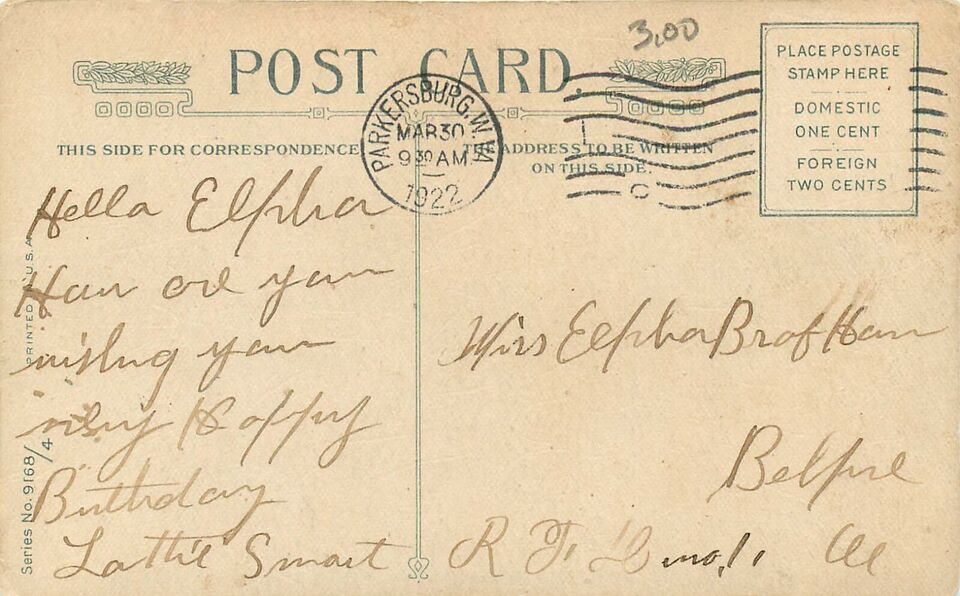 3.00
POST CARD.
PLACE POSTAGE
STAMP HERE
DOMESTIC
ONE CENT
FOREIGN
TWO CENTS
PARKERSBURG, W. VA
MAR 30
9 30 AM
1922
THIS SIDE FOR CORRESPONDENCE
THE ADDRESS TO BE WRITTEN
ON THIS SIDE.
Hella Elpha
Haw are yau
wishng yau
very Happy
Birthday
Lattie Smart
Miss Elpha
Belpre
R F D no. 1
PRINTED U.S.A
Series No. 9168/4